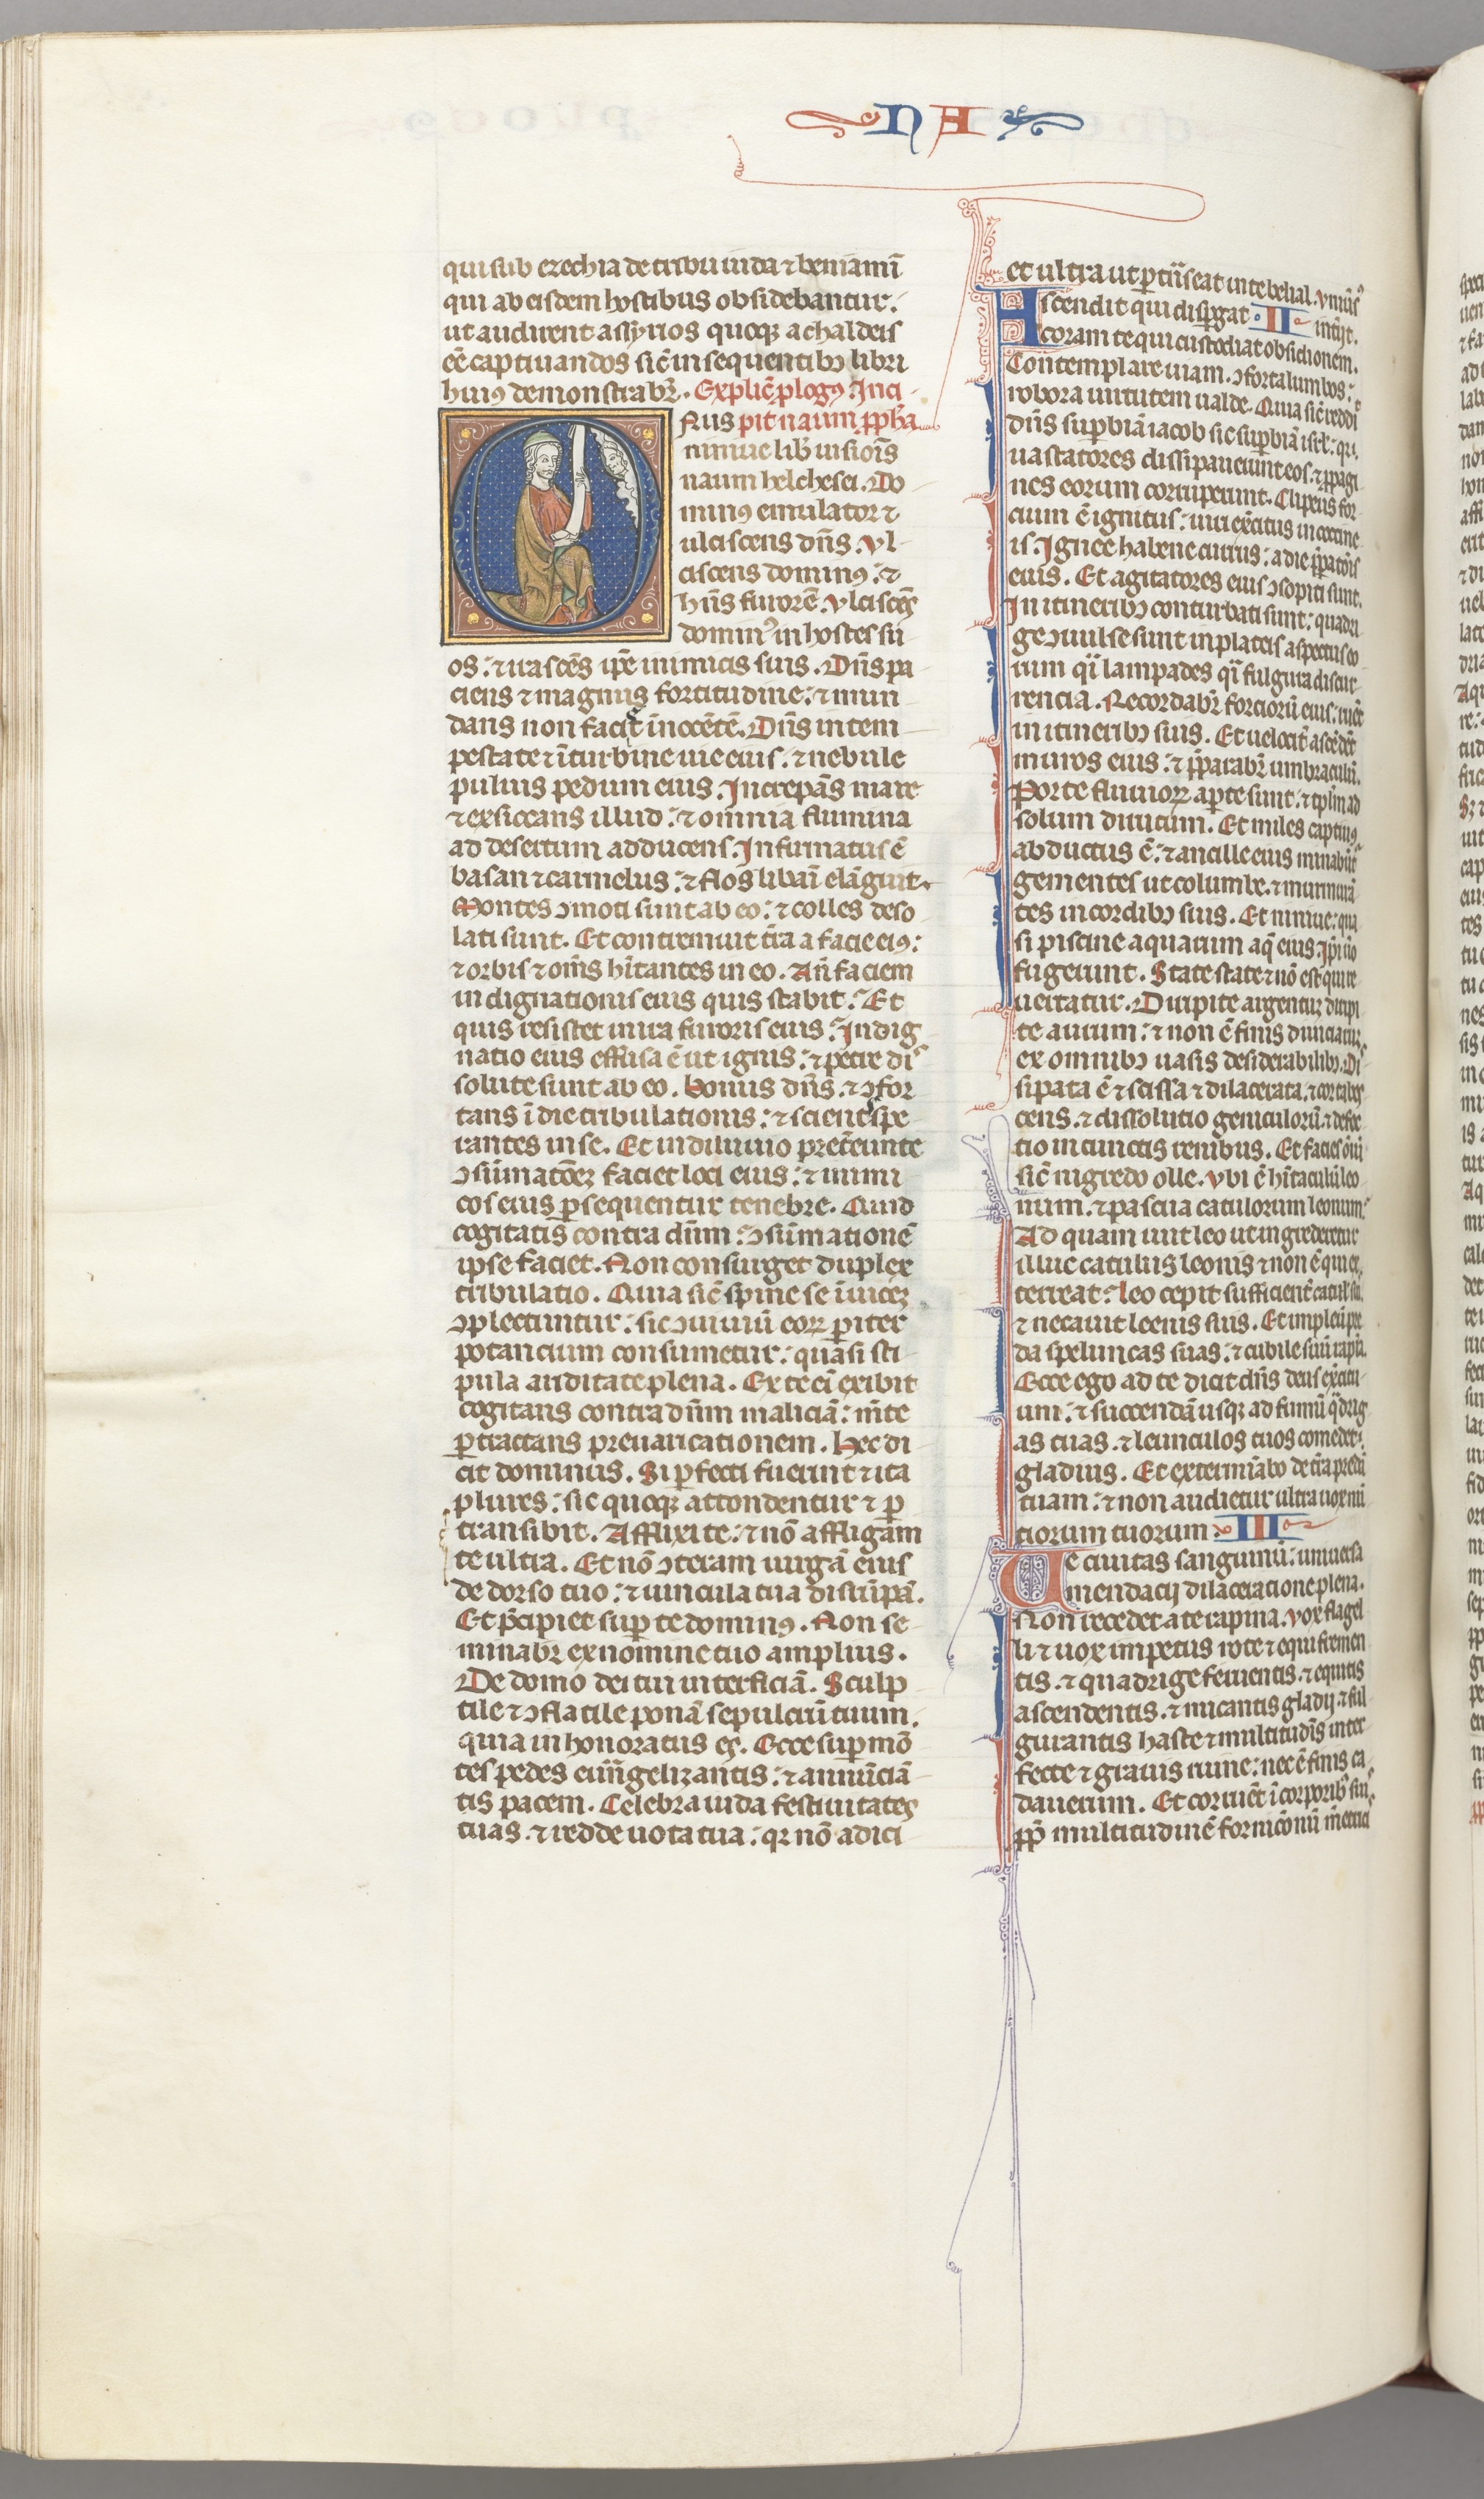 NA
qui sub ezechia de tribu iuda ⁊ beniamī
qui ab eisdem hostibus obsidebantur.
ut audirent assyrios quoqꝫ a chaldeis
eē captiuandos sic̄ in sequentibꝫ libri
huiꝰ demonstrabr̄. Explic̄ plogꝰ. Inci
Onus pit naum ꝓph̄a
niniue lib̄ uisiois̄
naum helchesei. Do
minꝰ emulator ⁊
ulciscens dn̄s. Vl
ciscens dominꝰ: ⁊
hn̄s furorē. Vlciscēs
dominꝰ in hostes su
os: ⁊ irascēs ip̄e inimicis suis. Dn̄s pa
ciens ⁊ magnus fortitudine: ⁊ mun
dans non faciet īnocētē. Dn̄s in tem
pestate ⁊ ī turbine uie eius. ⁊ nebule
puluis pedum eius. Increpās mare
⁊ exsiccans illud: ⁊ omnia flumina
ad desertum adducens. Infirmatus ē
basan ⁊ carmelus: ⁊ flos libani elāguit.
Montes ↄmoti sunt ab eo: ⁊ colles deso
lati sunt. Et contremuit tr̄a a facie eiꝰ:
⁊ orbis ⁊ om̄s hītantes in eo. An̄ faciem
indignationis eius quis stabit: Et
quis resistet in ira furoris eius: Indig
natio eius effusa ē ut ignis: ⁊ petre dis
solute sunt ab eo. Bonus dn̄s. ⁊ ↄfor
tans ī die tribulationis: ⁊ sciens spe
rantes in se. Et in diluuio pret̄eunte
ↄsūmatōeꝫ faciet loci eius: ⁊ inimi
cos eius ꝑsequentur tenebre. Quid
cogitatis contra dūm: ↄsūmationē
ipse faciet. Non consurget duplex
tribulatio. Quia sic̄ spine se īuiceꝫ
ↄplectuntur: sic ↄuiuiū eoꝝ pariter
potancium consumetur: quasi sti
pula ariditate plena. Ex te ei̅ exibit
cogitans contra dūm maliciā: m̄te
ꝑtractans preuaricationem. Hec di
cit dominus. Si ꝑfecti fuerint ⁊ ita
plures: sic quoqꝫ attondentur ⁊ ꝑ
transibit. Afflixi te: ⁊ nō affligam
te ultra. Et nō̅ ↄteram uirgā eius
de dorso tuo: ⁊ uincula tua disrūpā.
Et p̄cipiet suꝑ te dominꝰ. Non se
minabr̄ ex nomine tuo amplius.
De domo dei tui interficiā. Sculp
tile ⁊ ↄflatile ponā sepulcrū tuum.
quia in honoratus es. Ecce suꝑ mō
tes pedes euūgelizantis: ⁊ annūciā
tis pacem. Celebra iuda festiuitates
tuas. ⁊ redde uota tua: qꝛ nō adici
et ultra ut ꝑtīseat in te belial. Vniūsꝰ
Ascendit qui disꝑgat II intijt.
coram te qui custodiat obsidionem.
Contemplare uiam. ↄforta lumbos:
robora uirtutem ualde. Quia sic̄ reddi
dn̄s suꝑbiā iacob sic suꝑbiā isrl̄: qꝛ.
uastatores dissipauerunt eos. ⁊ ꝓpagi
nes eorum corruperunt. Clipeus for
cium ē ignitus: uiri ex̄citus in coccine
is. Ignee habene currus: a die p̄paratōis
eius. Et agitatores eius ↄsopiti sunt.
In itineribꝫ conturbati sunt: quadri
ge ↄuulse sunt in plateis aspectus eo
rum qi̅ lampades qi̅ fulgura discur
rencia. Recordabr̄ forciorū eius: ruēt
in itineribꝫ suis. Et uelocit̄ ascēdēt
muros eius: ⁊ p̄parabr̄ umbraculū.
Porte fluuioꝝ aꝑte sunt. ⁊ tplm̄ ad
solum dirutum. Et miles captiuꝰ
abductus ē: ⁊ ancille eius minabūt̄
gementes ut columbe. ⁊ murmurā
tes in cordibꝫ suis. Et niniue: qua
si piscine aquarum aq̄ eius. Ip̄i uō
fugerunt. State state ⁊ nō est qui re
uertatur. Diripite argentuꝫ diripi
te aurum: ⁊ non ē finis diuiciaꝝ.
ex omnibꝫ uasis desiderabilibꝫ. Di
sipata ē ⁊ scissa ⁊ dilacerata. ⁊ cor tabes
cens. ⁊ dissolutio geniculorū. ⁊ defec
tio in cunctis renibus. Et facies oīū
sic̄ nigredo olle. Vbi ē hītaculū leo
num. ⁊ pascua catulorum leonum:
Ad quam iuit leo ut ingrederetur
illuc catulus leonis ⁊ non ē qui ex
terreat: Leo cepit sufficient̄ catul̄ suis.
⁊ necauit leenis suis. Et impleuit pre
da speluncas suas: ⁊ cubile suū rapīa.
Ecce ego ad te dicit dn̄s deus ex̄citu
um. ⁊ succendā usqꝫ ad fumū q̄drig
as tuas. ⁊ leunculos tuos comedet
gladius. Et extermīabo de tr̄a predā
tuam: ⁊ non audietur ultra uox nū
ciorum tuorum III
Ue ciuitas sanguinū: uniuersa
mendacij dilaceratione plena.
Non recedet a te rapina. Vox flagel
li ⁊ uox impetus rote ⁊ equi fremen
tis. ⁊ quadrige feruentis. ⁊ equitis
ascendentis. ⁊ micantis gladij. ⁊ ful
gurantis haste ⁊ multitudīs inter
fecte ⁊ grauis ruine: nec ē finis ca
dauerum. Et corruēt ī corporibꝰ suis.
ꝓp̄ multitudinē fornicōnū m̄etricis